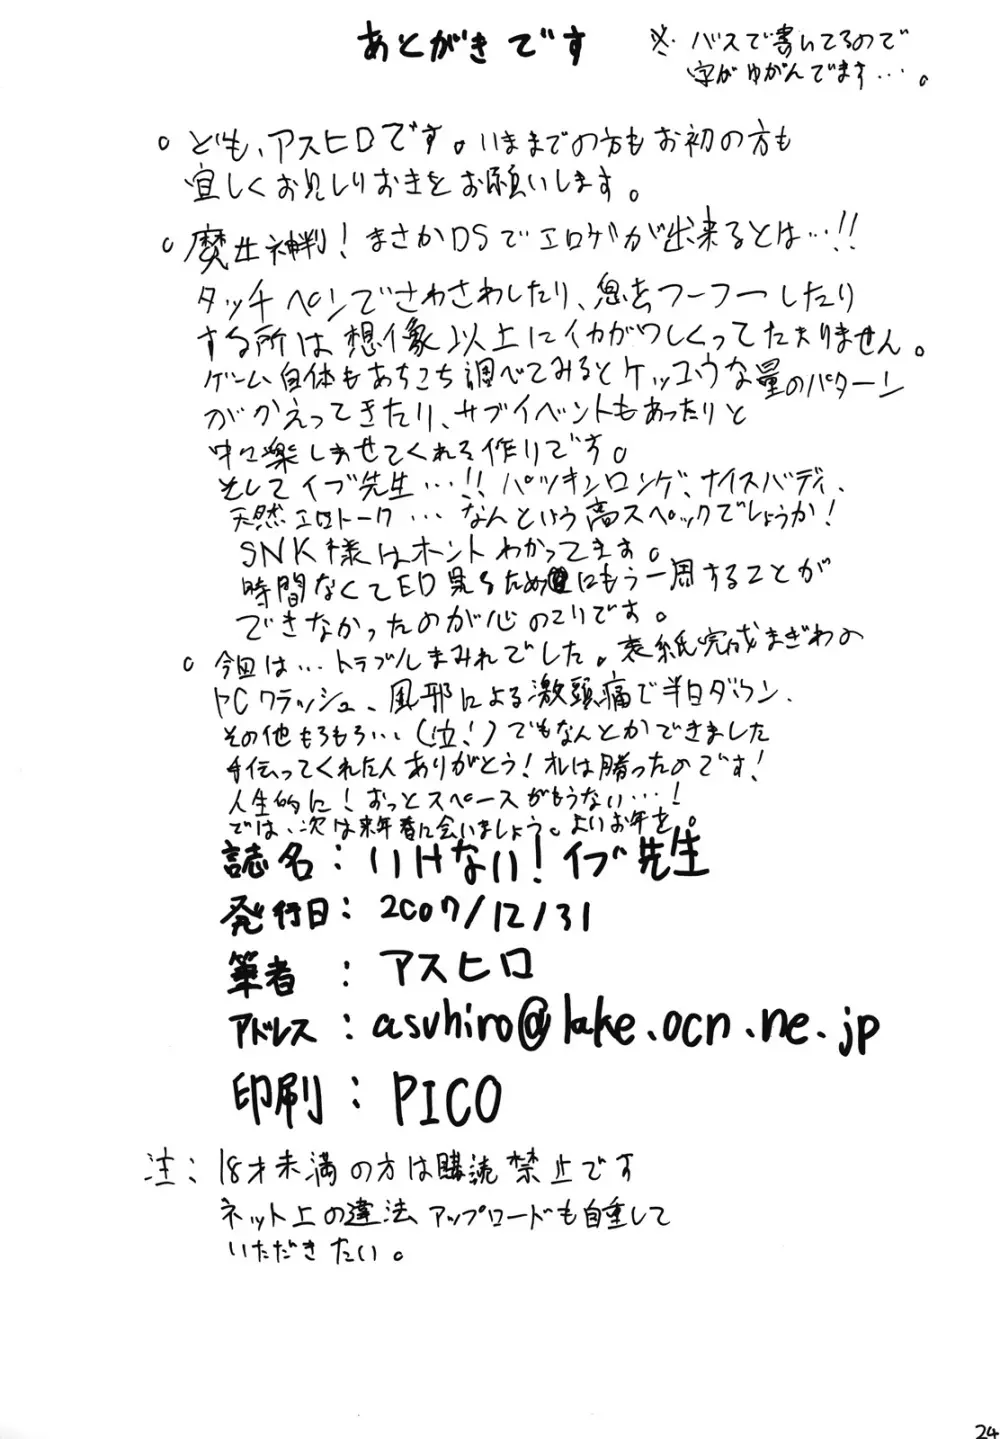 あとがきです
※バスで書いてるので
字がゆがんでます…。
。ども、アスヒロです。いままでの方もお初の方も
宜しくお見しりおきをお願いします。
。魔女神判！まさかDSでエロゲが出来るとは…!!
タッチペンでさわさわしたり、息をフーフーしたり
する所は想像以上にイカガワしくってたまりません。
ゲーム自体もあちこち調べてみるとケッコウな量のパターン
がかえってきたり、サブイベントもあったりと
中々楽しませてくれる作りです。
そしてイブ先生…!!パツキンロンゲ、ナイスバディ、
天然エロトーク…なんという高スペックでしょうか！
SNK様はホントわかってます。
時間なくてED見るためにもう一周することが
できなかったのが心のこりです。
。今回は…トラブルまみれでした。表紙完成まぎわの
PCクラッシュ、風邪による激頭痛で半日ダウン、
その他もろもろ…(泣！)でもなんとかできました
手伝ってくれた人ありがとう！オレは勝ったのです！
人生的に！おっとスペースがもうない…！
では、次は来年春に会いましょう。よいお年を。
誌名：いけない！イブ先生
発行日：2007/12/31
筆者：アスヒロ
アドレス：asuhiro@lake.ocn.ne.jp
印刷：PICO
注：18才未満の方は購読禁止です
ネット上の違法アップロードも自重して
いただきたい。
24